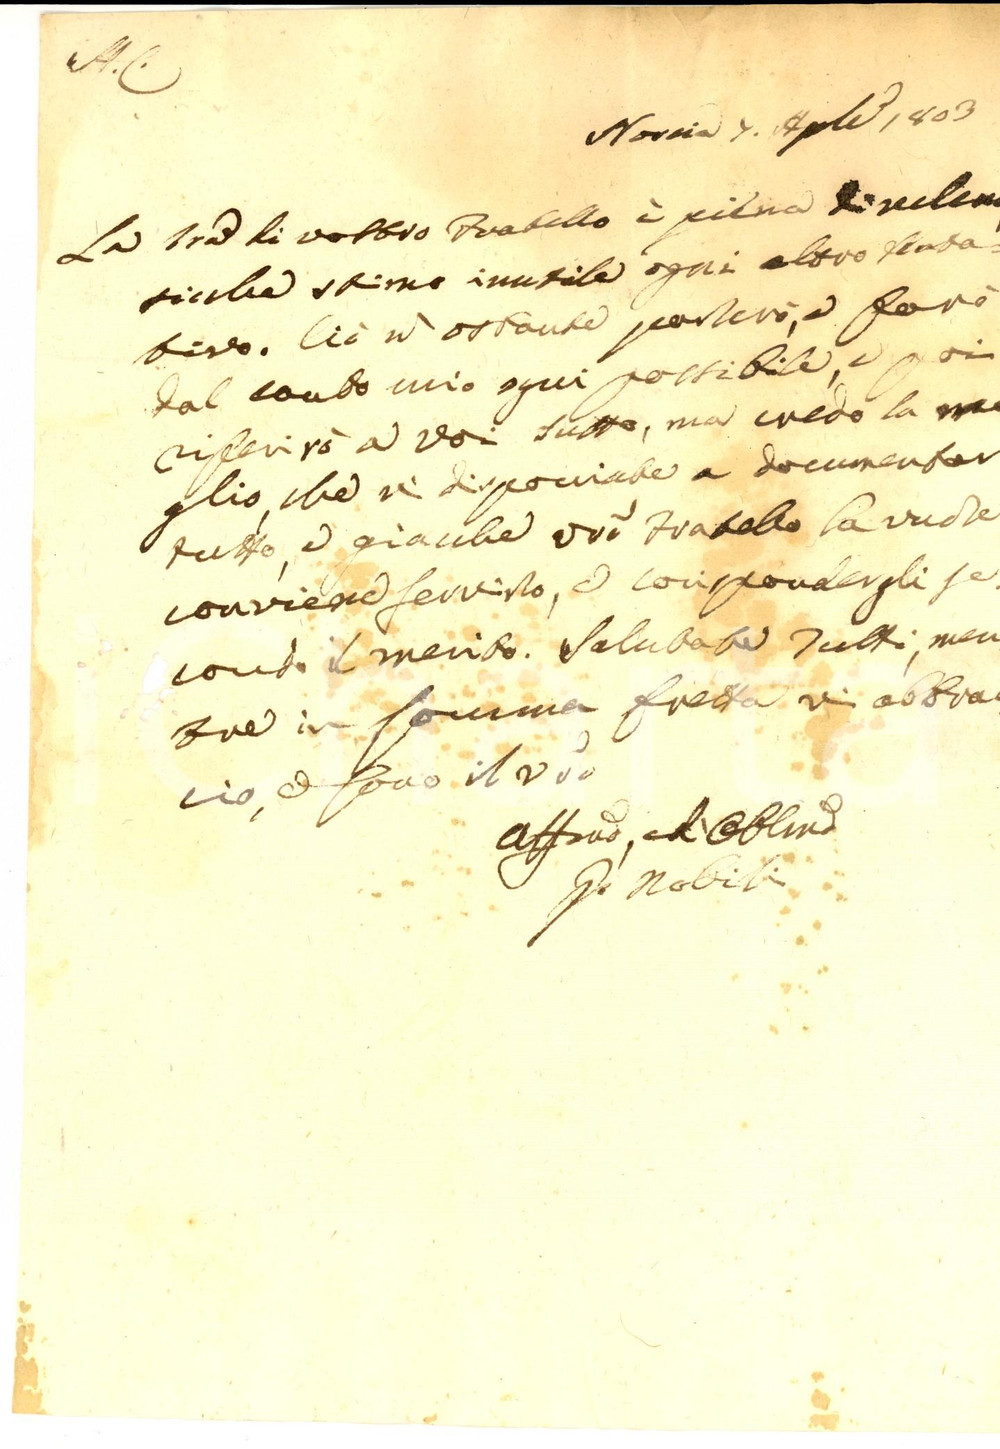 A. C.
Norcia 7. Aple 1803
La tra di vostro Fratello è piena di veleno,
sicche stimo inutile ogni altro tenta=
tivo. Ciò n ostante parlerò, e farò
dal canto mio ogni possibile, e poi
riferirò a voi tutto, ma credo la me
glio, che vi disponiate a documentar
tutto, e giacche vro Fratello la vuole
conviene servirlo, e corrispondergli se
condo il merito. Salutate Tutti, men
tre in somma fretta vi abbrac
cio, e sono il vro
Affmo, ed Obblmo
Nobili